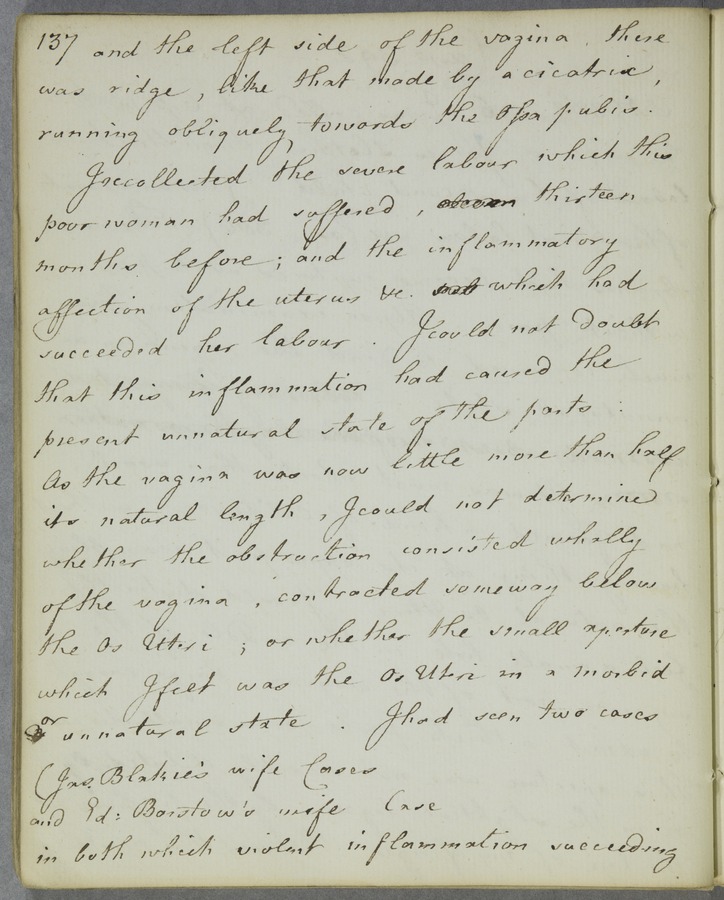 137 and the left side of the vagina. there
was ridge, like that made by a cicatrix,
running obliquely towards the Ossa pubis.
I recollected the severe labour which this
poor woman had suffered, thirteen
months before; and the inflammatory
affection of the uterus &c. which had
succeeded her labour. I could not doubt
that this inflammation had caused the
present unnatural state of the parts:
As the vagina was now little more than half
its natural length, I could not determine
whether the obstruction consisted wholly
of the vagina, contracted someway below
the Os Uteri; or whether the small aperture
which I felt was the Os Uteri in a morbid
or unnatural state. I had seen two cases
(Jas. Blakie's wife Cases
and Ed: Barstow's wife Case
in both which violent inflammation succeeding